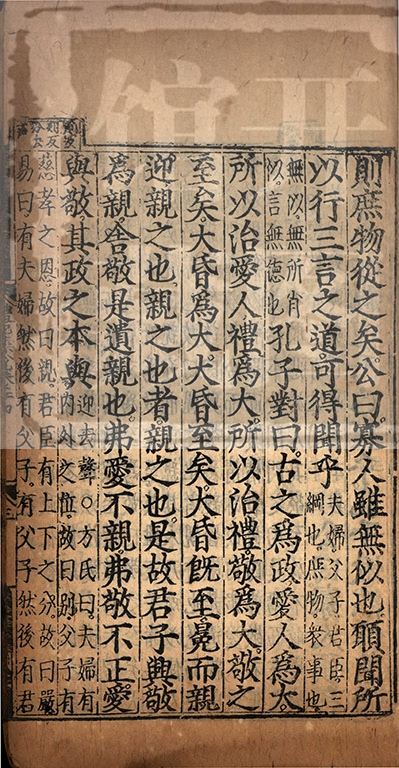 則庶物從之矣公曰寡人雖無似也願聞所
以行三言之道可得聞乎夫婦父子君臣三
綱也庶物衆事也
無以無所肖
以言無德也孔子對曰古之爲政愛人爲大
所以治愛人禮爲大所以治禮敬爲大敬之
至矣大昏爲大大昏至矣大昏既至冕而親
迎親之也親之也者親之也是故君子興敬
爲親舍敬是遺親也弗愛不親弗敬不正愛
與敬其政之本與迎去聲○方氏曰夫婦有
内外之位故曰别父子有
慈孝之恩故曰親君臣有上下之分故曰嚴
易曰有夫婦然後有父子有父子然後有君
館